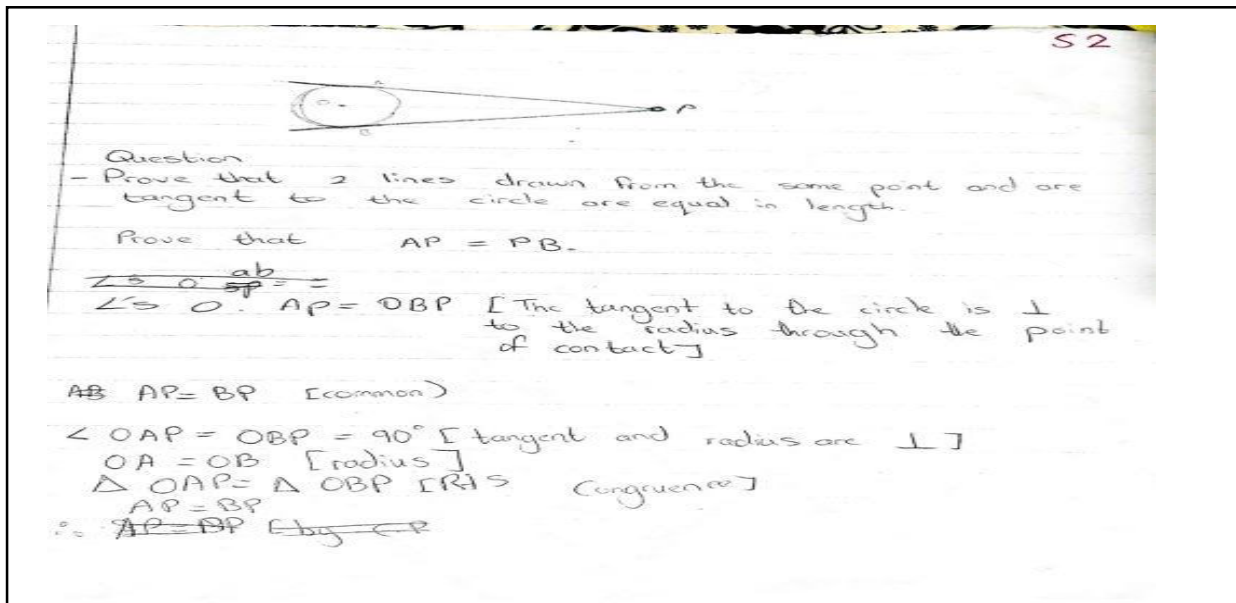 S2
A
O
P
B
Question
- Prove that 2 lines drawn from the same point and are
tangent to the circle are equal in length.
Prove that AP = PB.
ab
∠s O sp = =
∠'s O. AP = OBP [The tangent to the circle is ⊥
to the radius through the point
of contact]
AB AP = BP [common)
< OAP = OBP = 90° [tangent and radius are ⊥]
OA = OB [radius]
△ OAP = △ OBP [RHS Congruence]
AP = BP
∴ AP = BP [by